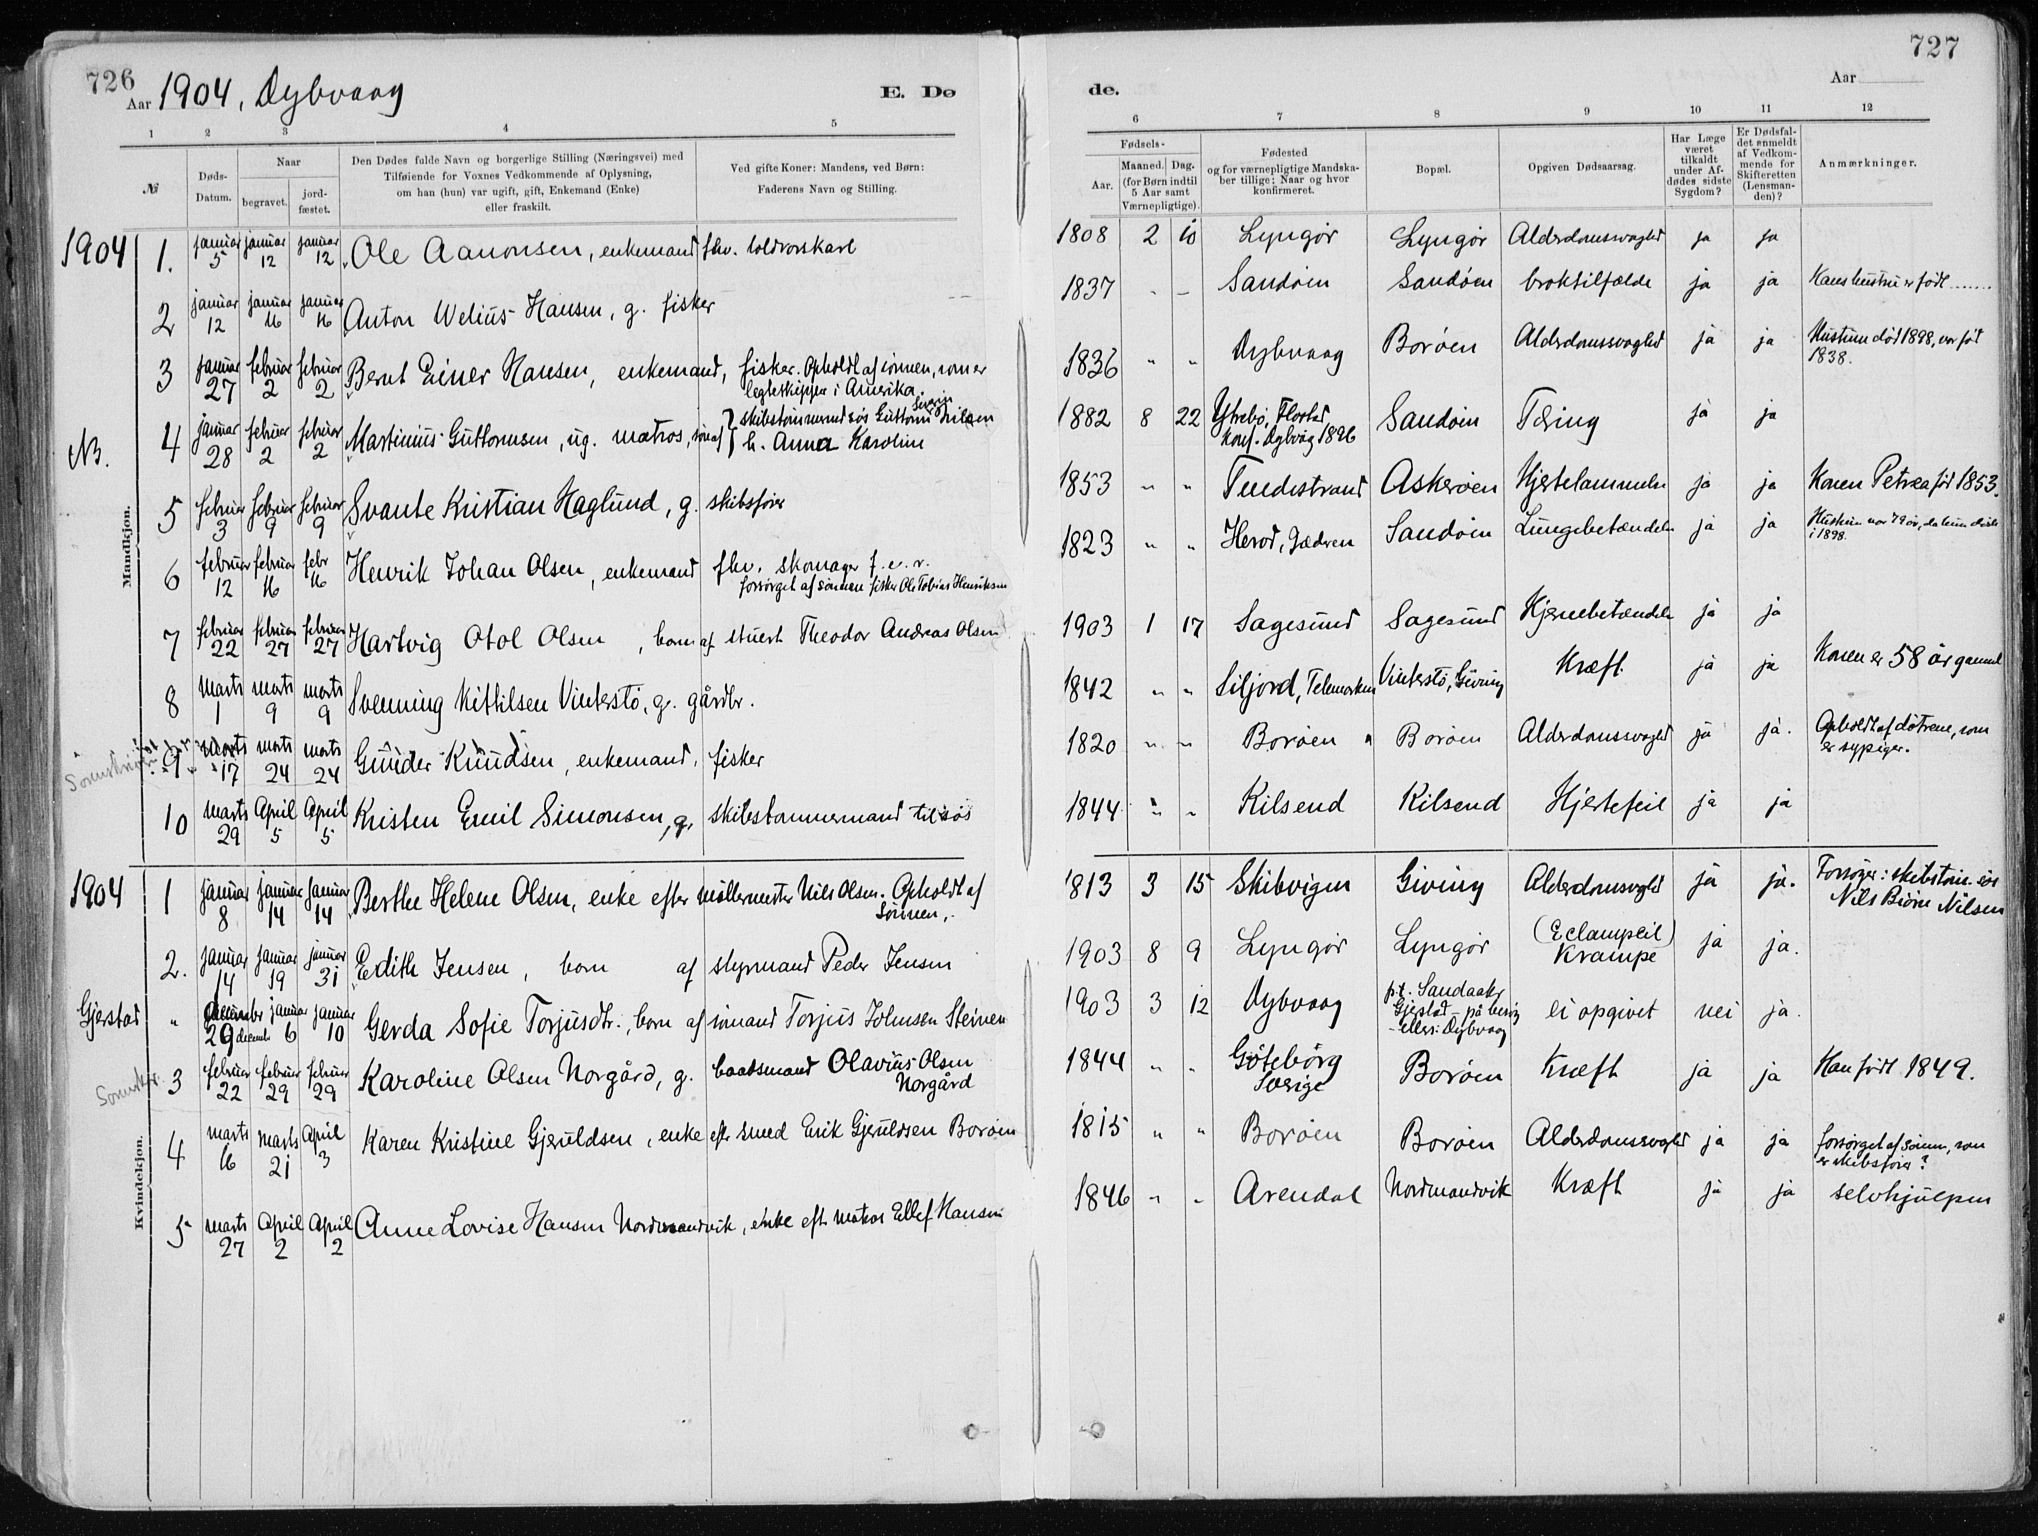 726
Aar 1904, Dybvaag
E. Dø
1 2 3 4 5
№
Døds-Datum.
Naar
begravet.
jord-fæstet.
Den Dødes fulde Navn og borgerlige Stilling (Næringsvei) med
Tilføiende for Voxnes Vedkommende af Oplysning,
om han (hun) var ugift, gift, Enkemand (Enke)
eller fraskilt.
Ved gifte Koner: Mandens, ved Børn:
Faderens Navn og Stilling.
Mandkjøn.
1904 1. januar 5 januar 12 januar 12 Ole Aanonsen, enkemand fhv. toldvorskarl
2 januar 12 januar 16 januar 16 Anton Welius Hansen, g. fisker
3 januar 27 februar 2 februar 2 Bernt Einer Hansen, enkemand, fisker. Opholdt af sønnen, som er
legteskipper i Amerika.
NB. 4 januar 28 februar 2 februar 2 Martinius Guttormsen, ug. matros, søn af skibstømmermand søs Guttorm Severin Nilsen
h. Anna Karoline
5 februar 3 februar 9 februar 9 Svante Kristian Haglund, g. skibsfører
6 februar 12 februar 16 febr 16 Henrik Johan Olsen, enkemand fhv. skomager f.e.v.
forsørget af sønnen fisker Ole Tobias Henriksen
7 februar 22 februar 27 februar 27 Hartvig Otol Olsen, barn af stuert Theodor Andreas Olsen
8 marts 1 marts 9 marts 9 Svenning Kittilsen Vinterstø, g. gårdbr.
9 marts 17 marts 24 marts 24 Gunder Knudsen, enkemand, fisker
10 marts 29 April 5 April 5 Kristen Emil Simonsen, g. skibstømmermand tilsøs
Kvindekjøn.
1904 1 januar 8 januar 14 januar 14 Berthe Helene Olsen, enke efter møllermester Nils Olsen. Opholdt af
Sønnen.
2. januar 14 januar 19 januar 31 Edith Jensen, barn af styrmand Peder Jensen
Gjerstad " december 29 decemb januar 6 januar 10 Gerda Sofie Torjusdtr., barn af sømand Torjus Johnsen Steinen
3 februar 22 februar 29 februar 29 Karoline Olsen Norgård, g. baadsmand Olavius Olsen
Norgård
4 marts 16 marts 21 April 3 Karen Kristine Gjeruldsen, enke efter smed Erik Gjeruldsen Borøen
5 marts 27 April 2 April 2 Anne Lovise Hansen Nordmandvik, enke eft matros Ellef Hansen
727
Aar
de.
6 7 8 9 10 11 12
Fødsels-
Aar.
Maaned. Dag.
(for Børn indtil
5 Aar samt
Værnepligtige).
Fødested
og for værnepligtige Mandska-
ber tillige: Naar og hvor
konfirmeret.
Bopæl.
Opgiven Dødsaarsag.
Har Læge
været
tilkaldt
under Af-
dødes sidste
Sygdom?
Er Dødsfal-
det anmeldt
af Vedkom-
mende for
Skifteretten
(Lensman-
den)?
Anmærkninger.
1808 2 10 Lyngør Lyngør Alderdomssvaghed ja ja
1837 - - Sandøen Sandøen broktilfælde ja ja Hans hustru er født .......
1836 " " Dybvaag Borøen Alderdomssvaghed ja ja Hustruen død 1898, var fød
1838.
1882 8 22 Ytrebø, Flosta Sandøen Tæring ja ja
konf. Dybvåg 1896
1853 " " Tvedestrand Askerøen Hjertelammelse ja ja Konen Petrea fød 1853.
1823 " " Herod, Jædren Sandøen Lungebetændelse ja ja Hustruen var 79 år, da hun døde
i 1898.
1903 1 17 Sagesund Sagesund Hjernebetændelse ja ja
1842 " " Siljord, Telemarken Vinterstø, Giving Kræft ja ja Konen er 58 år gammel
1820 " " Borøen Borøen Alderdomssvaghed ja ja. Opholdt af døtrene, som
er sypiger.
1844 " " Kilsend Kilsend Hjertefeil ja ja
1813 3 15 Skibvigen Giving Alderdomssvaghed ja ja. Forsørger: skibstøm. søs
Nils Bjørn Nilsen
1903 8 9 Lyngør Lyngør (Eclampsi) ja ja.
Krampe
1903 3 12 Dybvaag p.t. Sandaaker ei opgivet nei ja.
Gjerstad - på besøg
- ellers: Dybvaag
1844 " " Göteborg Borøen Kræft ja ja Han født 1849.
Sverige
1815 " " Borøen Borøen Alderdomssvaghed ja ja forsørget af sønnen, som
er skibsfører?
1846 " " Arendal Nordmandvik Kræft ja ja selvhjulpen